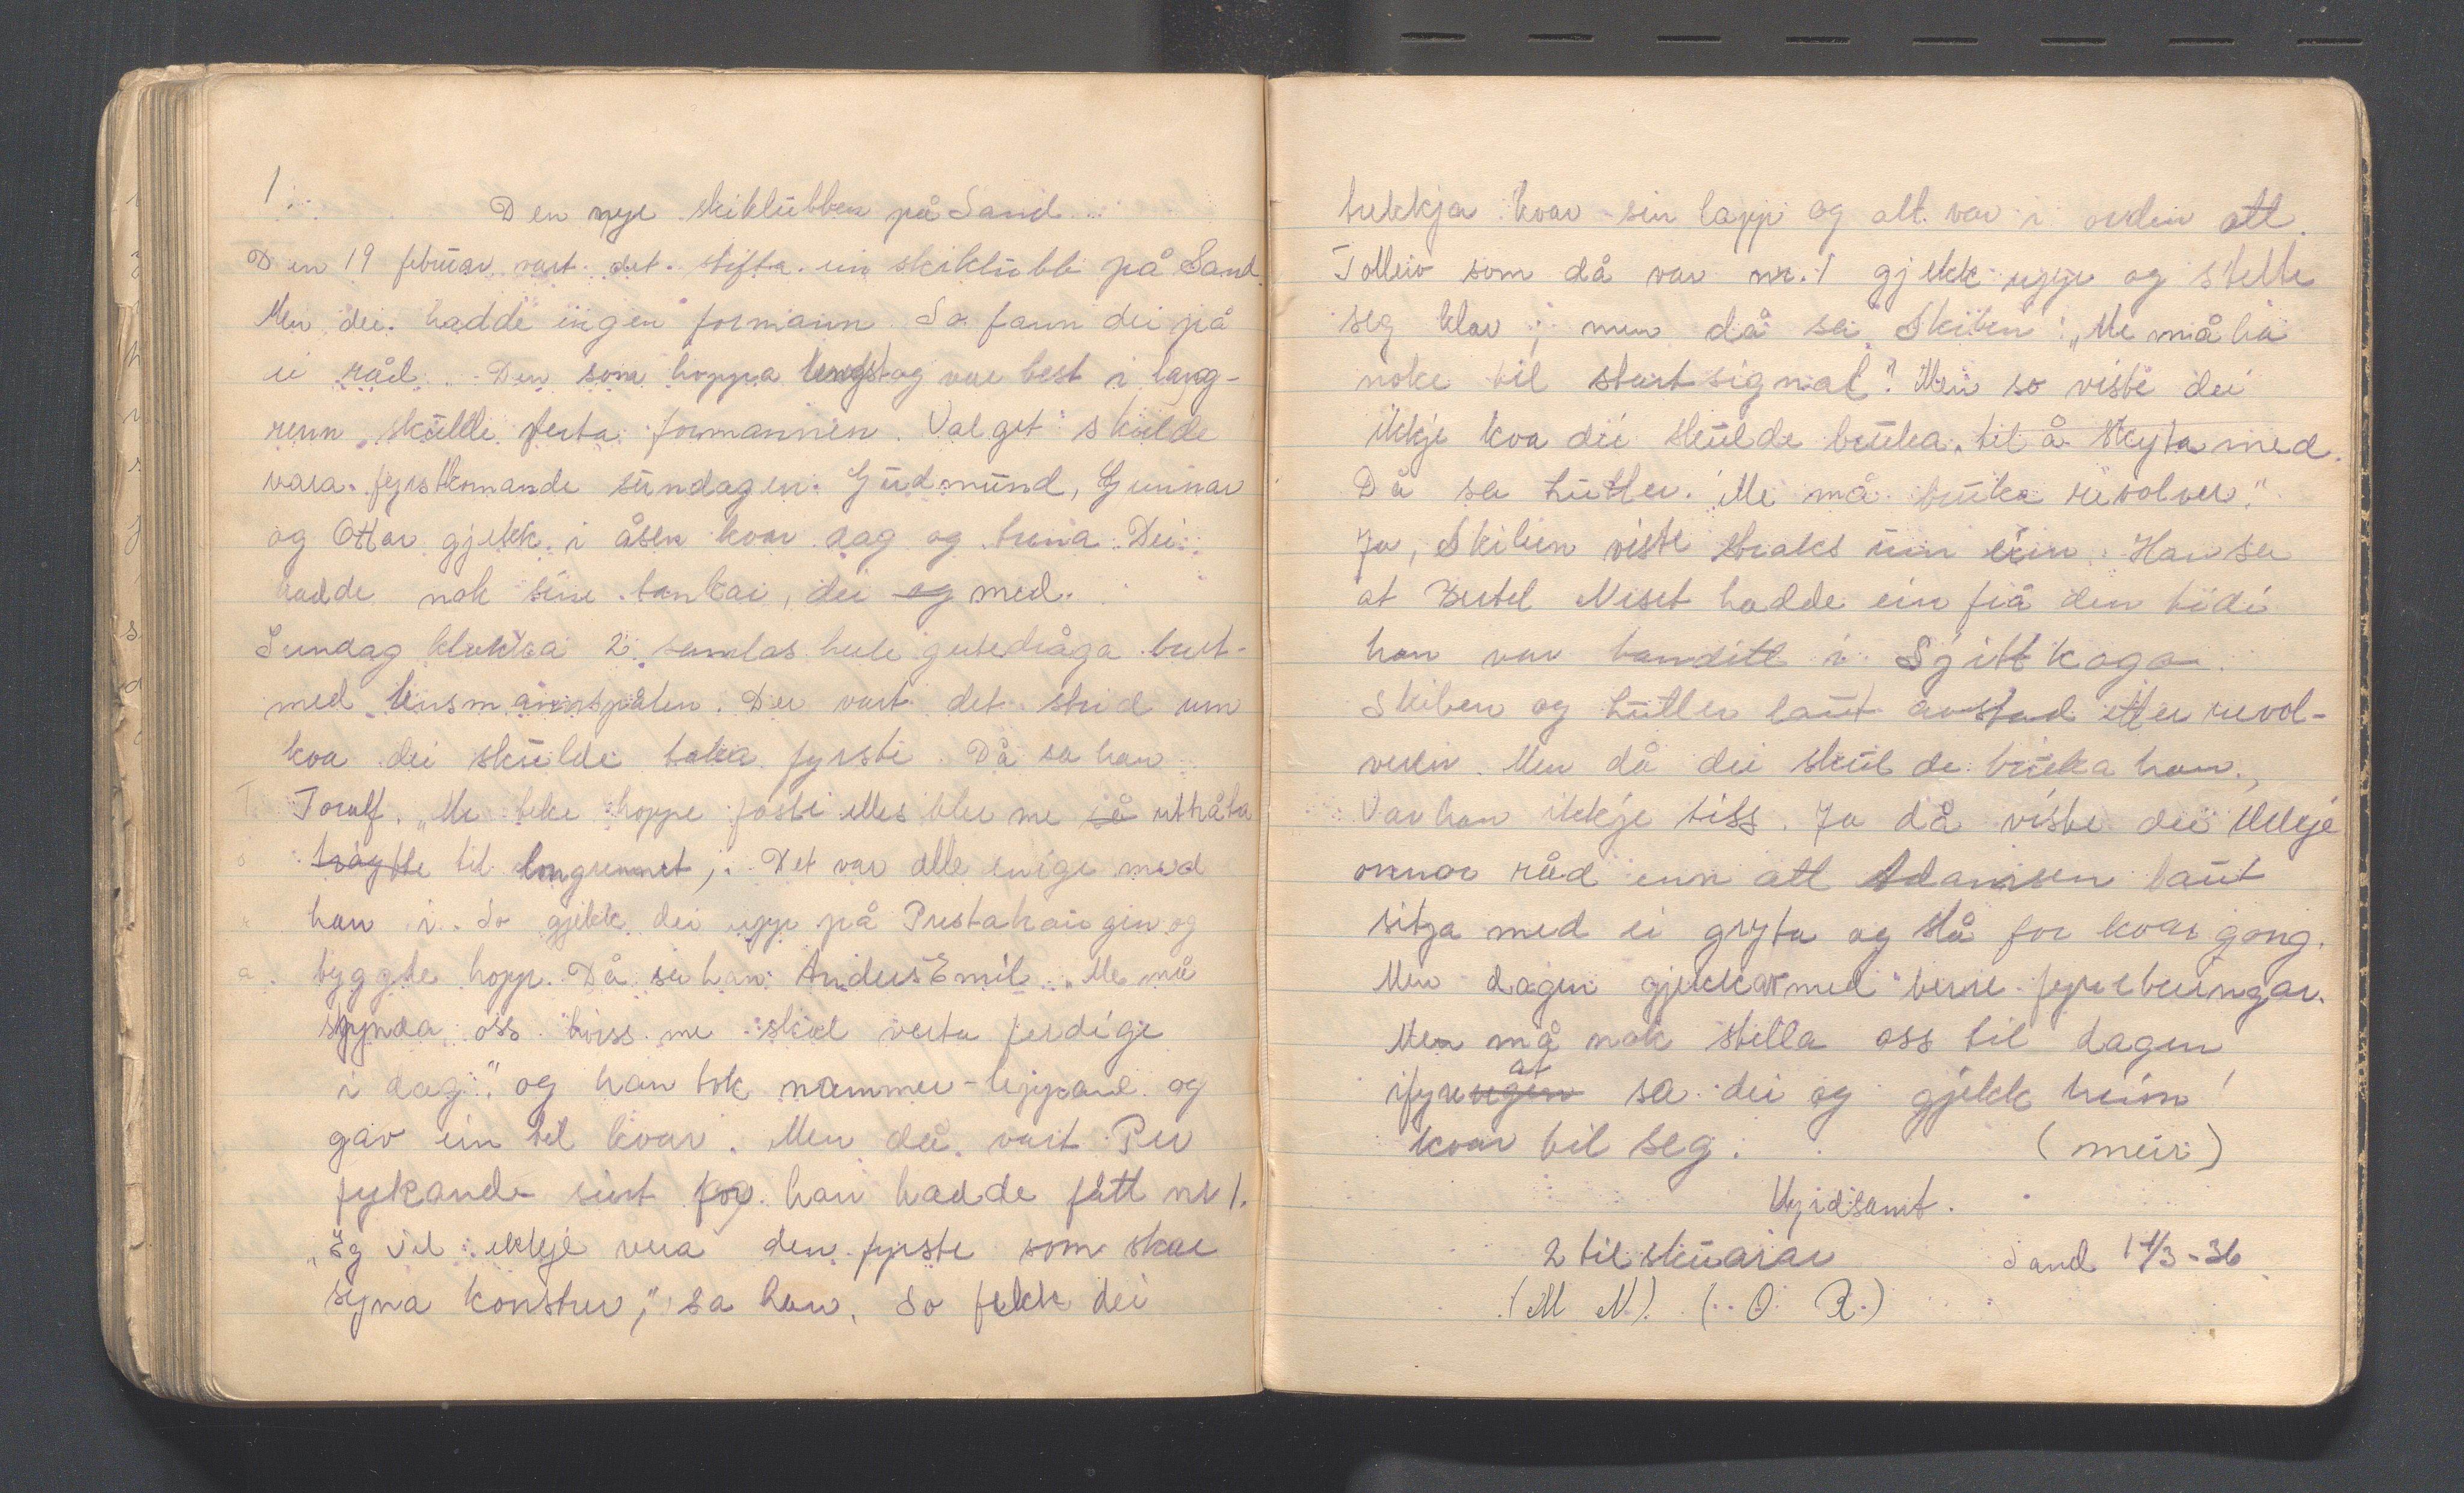 1
Den nye skiklubben på Sand.
Den 19 februar vart det stifta ein skiklubb på Sand.
Men dei hadde ingen formann. So fann dei på
ei råd. Den som hoppa lengst og var best i lang-
renn skulde verta formannen. Valget skulde
vara fyrstkomande sundagen. Gudmund, Gunnar
og Ottar gjekk i åsen kvar dag og trena. Dei
hadde nok sine tankar, dei og med.
Sundag klokka 2 samlas heile gutedråga burt-
med lensmannspålen. Der vart det strid um
kva dei skulde taka fyrste. Då sa han
Toralf. „Me beke hoppe føste elles bler me så uthåla
trøytte til langrennet". Det var alle einige med
han i. So gjekk dei uppe på Prestahaugin og
byggde hopp. Då sa han Anders Emil „Me må
skynda oss hviss me skal verta ferdige
i dag." og han tok nummer-lappane og
gav ein til kvar. Men då vart Per
fykande sint for han hadde fått nr 1.
„Eg vil ikkje vera den fyrste som skal
syna konster," sa han. So fekk dei
trekkja kvar sin lapp og alt var i orden att.
Tolleiv som då var nr. 1 gjekk uppe og stelte
seg klar; men då sa Skiben: „Me må ha
noke til startsignal". Men so viste dei
ikkje kva dei skulde bruka til å skyta med.
Då sa Lutler. Me må bruka revolver."
Ja, Skiben viste straks um ein. Han sa
at Bertel Neset hadde ein frå den tidi
han var banditt i Sjittkaga.
Skiben og Lutler laut avstad etter revol-
veren. Men då dei skulde bruka han,
Var han ikkje tiss. Ja då viste dei ikkje
onnor råd enn att Adamsen laut
sitja med ei gryta og slå for kvar gong.
Men dagen gjekk av med berre fyrebuingar.
Men må nok stella oss til dagen
ifyreugen at sa dei og gjekk heim
kvar til seg. (meir)
Upidsamt.
2 tilskuarar Sand 11/3-36
(M N) (O. R.)